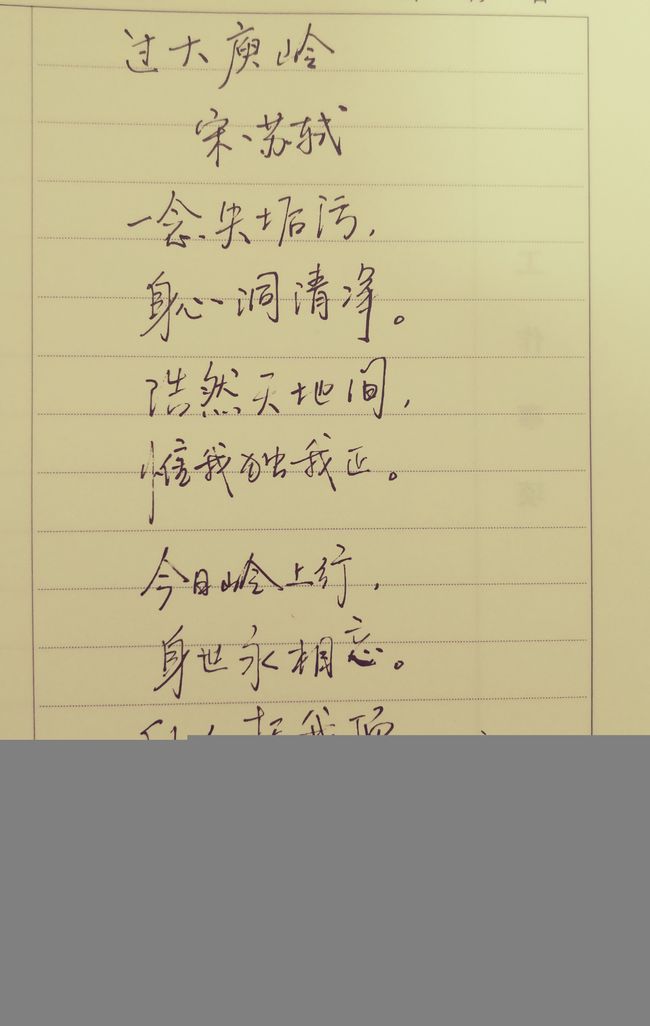 过大庾岭
宋·苏轼
一念失垢污，
身心洞清净。
浩然天地间，
惟我独我正。
今日岭上行，
身世永相忘。